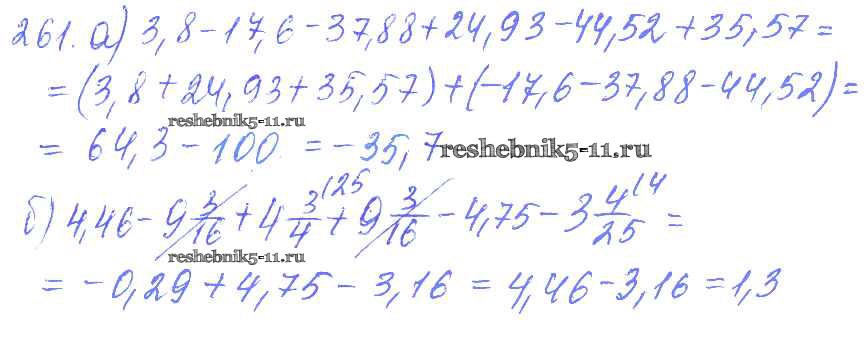 261. а) 3,8 - 17,6 - 37,88 + 24,93 - 44,52 + 35,57 =
= (3,8 + 24,93 + 35,57) + (-17,6 - 37,88 - 44,52) =
reshebnik5-11.ru
= 64,3 - 100 = -35,7
reshebnik5-11.ru
б) 4,46 - 9 3/16 + 4 3/4 (25 + 9 3/16 - 4,75 - 3 4/25 (4 =
reshebnik5-11.ru
= -0,29 + 4,75 - 3,16 = 4,46 - 3,16 = 1,3